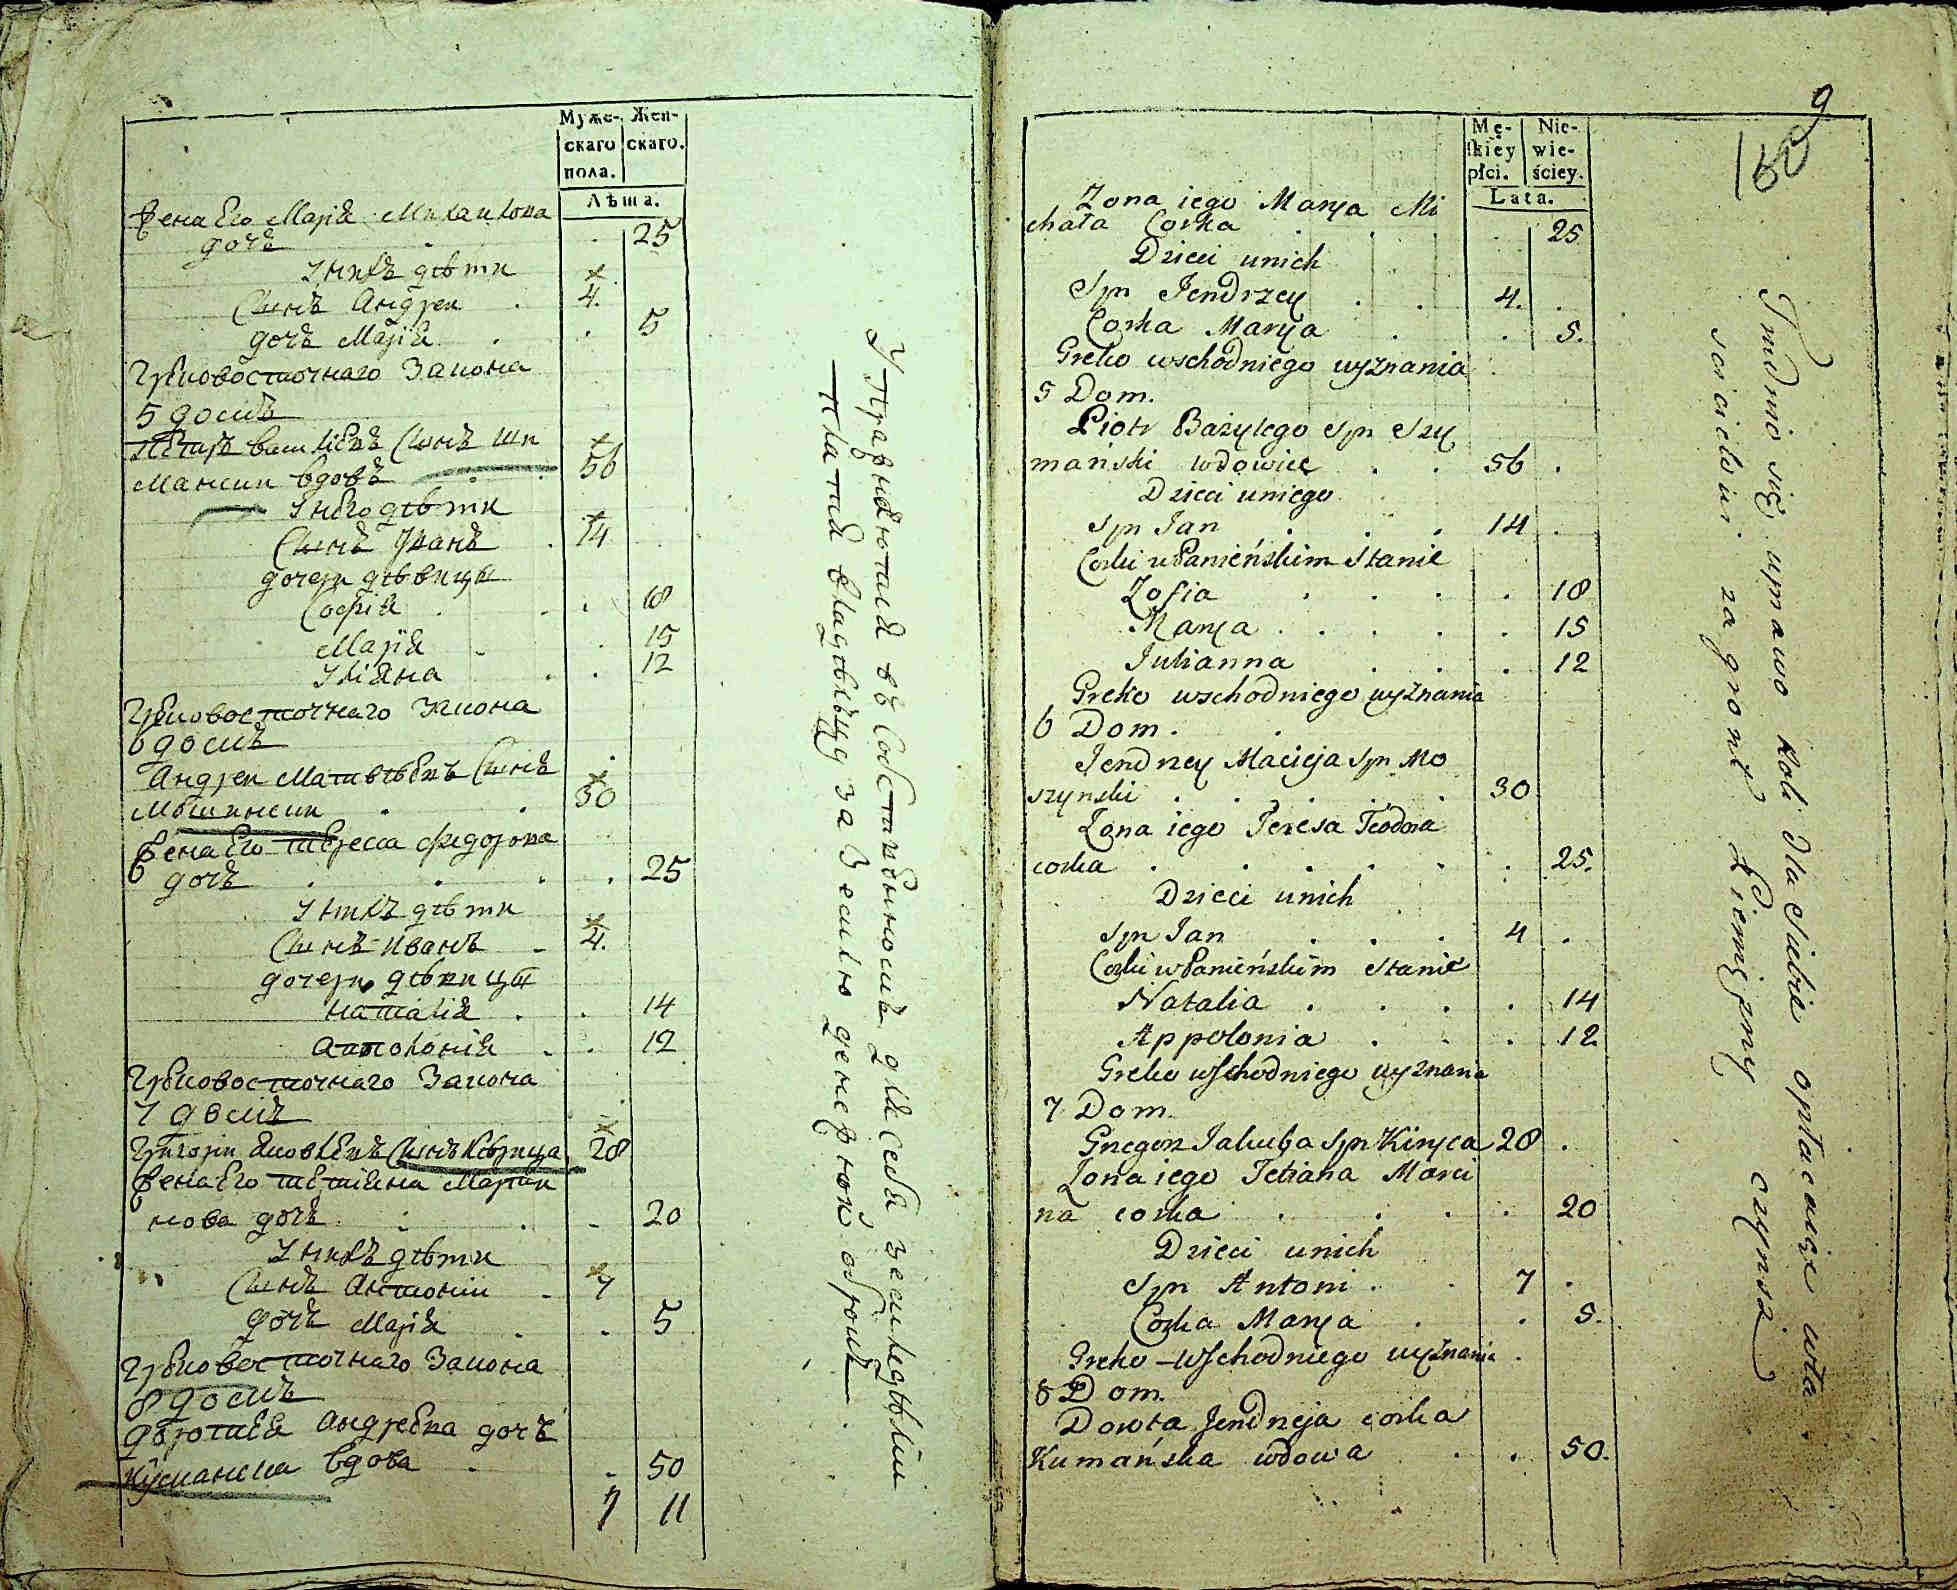 Муже-
скаго
пола.
Жен-
скаго.
Лѣта.
Жена Его Марія Михаилова
дочь . . 25
У нихъ дѣти
Сынъ Андреи . 4.
дочь Марія . . 5
Грековосточнаго Закона
5 домъ
Петръ василіевъ Сынъ Ши
Мански вдовъ 56
У него дѣти
Сынъ Иванъ . 14
дочери дѣвицы
Софія . . . 18
Марія . . 15
Уліяна . . 12
Грековосточнаго Закона
6 домъ
Андреи Матвѣевъ Сынъ
Мошински . . 30
Жена Его тереса федорова
дочь . . . . 25
У нихъ дѣти
Сынъ Иванъ . 4.
дочери дѣвицы
Наталія . . 14
Апполонія . . 12
Грековосточнаго Закона
7 домъ
Григори Яковлевъ Сынъ Кѣрица 28
Жена Его тетіяна Марти
нова дочь . . . 20
У нихъ дѣти
Сынъ Антонии . 7
дочь Марія . . 5
Грековосточнаго Закона
8 домъ
Доротия Андреева дочь
Куманска вдова . . 50
7 11
Упражняются въ Собственномъ для себя земледѣліи
платя владѣльцу за Землю денежной оброкъ.
9
Mę-
skiéy
płci.
Nie-
wie-
ściey.
Lata.
Zona iego Marya Mi
chała Corka . . . . 25
Dzieci unich
Syn Jendrzey . . 4. .
Corka Marya . . 5.
Greko wschodniego wyznania
5 Dom.
Piotr Bazylego Syn Szy
mański wdowiec . . 56 .
Dzieci uniego
Syn Jan . . . 14 .
Corki w Panieńskim Stanie
Zofia . . . . 18
Marya . . . . . 15
Julianna . . . 12
Greko wschodniego wyznania
6 Dom.
Jendrzey Macieja Syn Mo
szynski . . . . . 30
Zona iego Teresa Teodora
corka . . . . . . 25.
Dzieci unich
Syn Jan . . . 4 .
Corki w Panieńskim Stanie
Natalia . . . . 14
Appolonia . . . 12
Greko wschodniego wyznania
7 Dom.
Grzegorz Jakuba Syn Kiryca 28 .
Zona iego Tetiana Marci
na corka . . . . . 20
Dzieci unich
Syn Antoni . . 7 .
Corka Marya . . 5.
Greko-wschodniego wyznania .
8 Dom.
Dorota Jendrzeja corka
Kumańska wdowa . . 50.
Trudnią się uprawo Roli dla siebie opłacaiąc wła
scicielowi za gront Pieniężny czynsz